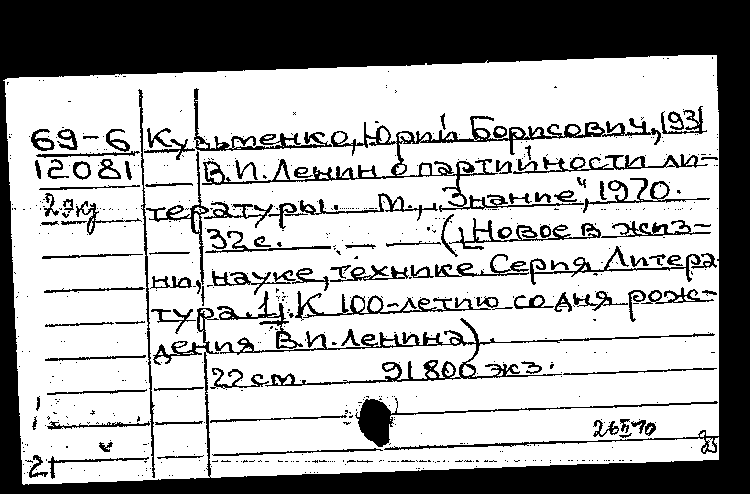 69-6 Кузьменко, Юрий Борисович, 1931
12081 В.И. Ленин о партийности ли-
2 экз тературы. М., „Знание“, 1970.
32 с. — (Новое в жиз-
ни, науке, технике. Серия Литера
тура. 1). К 100-летию со дня рож-
дения В.И. Ленина).
22 см. 91800 экз.
26 II 70
21